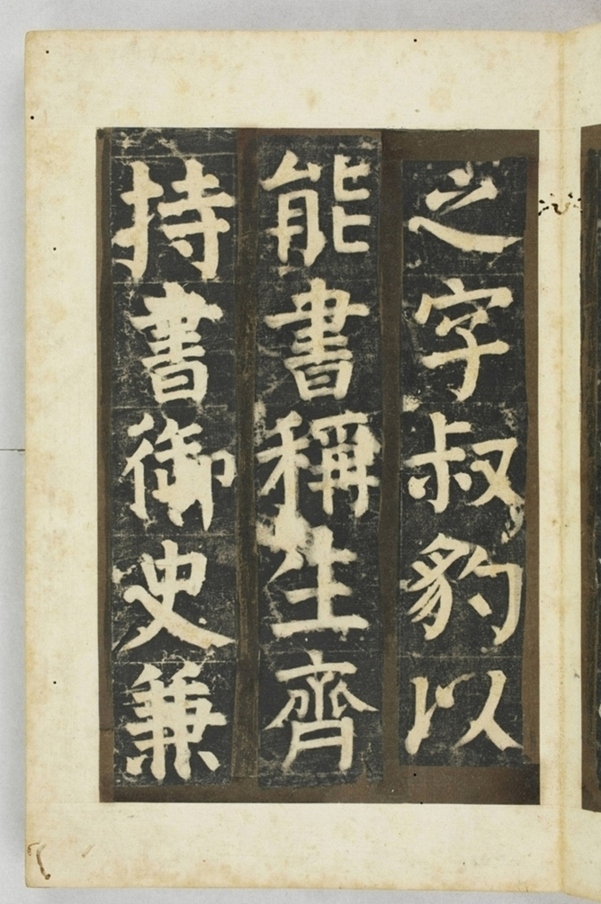 之字叔豹以
能書稱生齊
持書御史兼